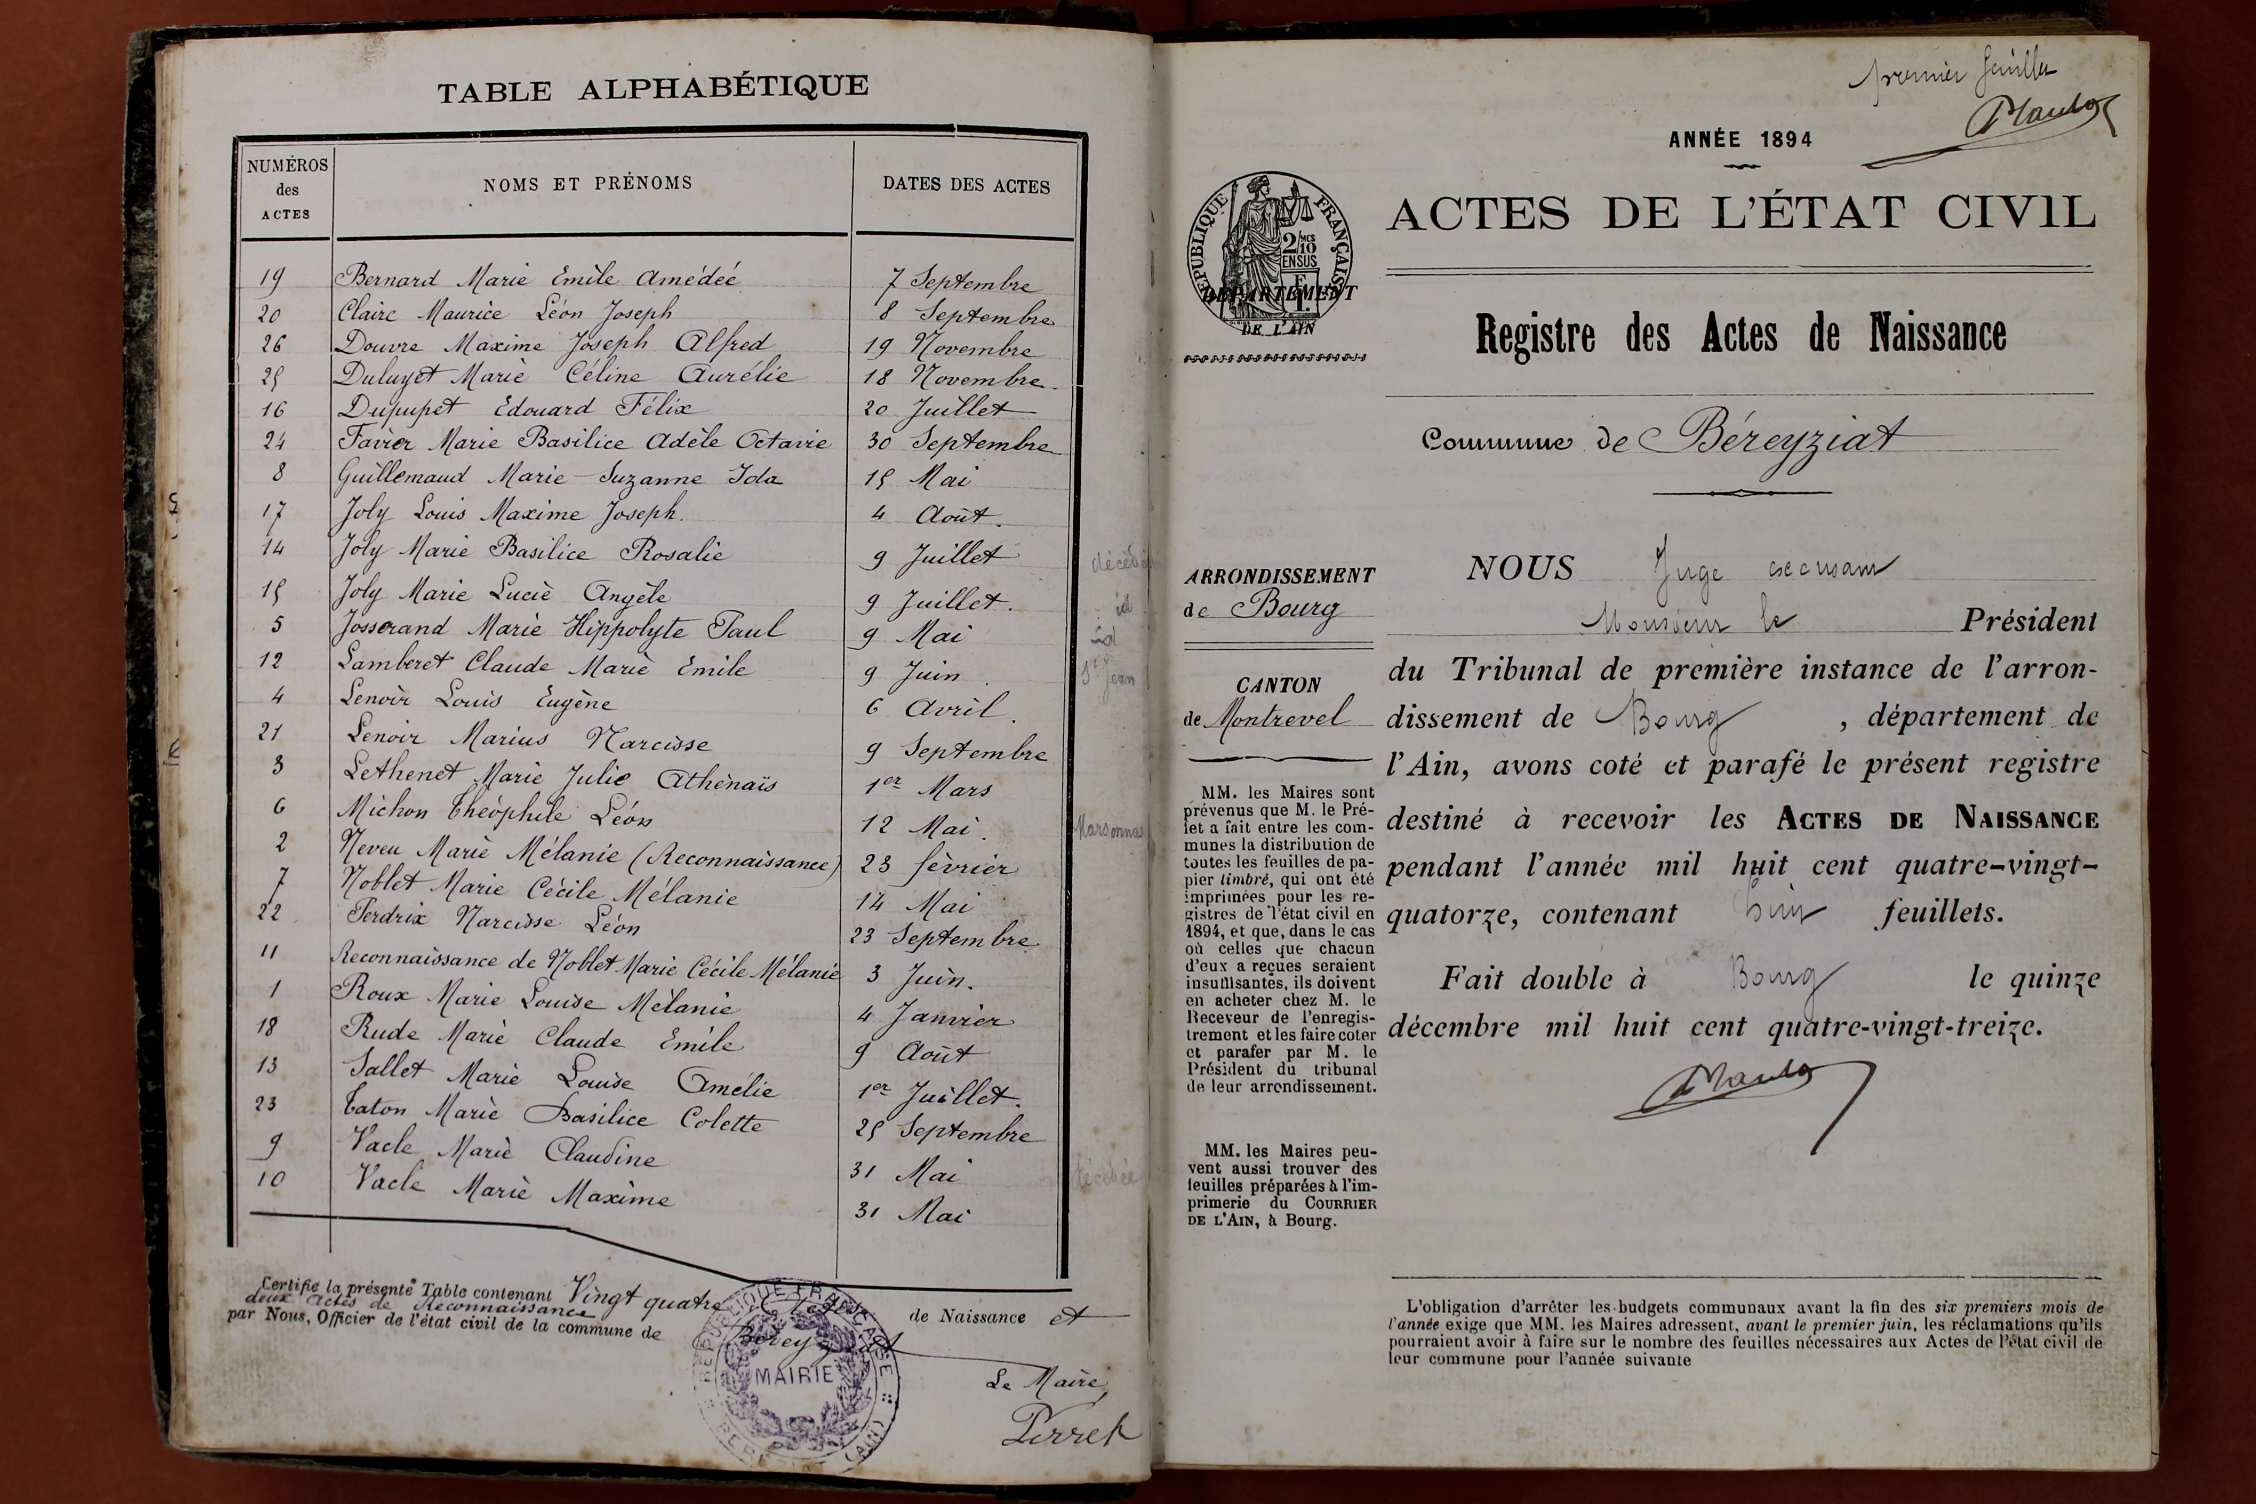 TABLE ALPHABÉTIQUE
NUMÉROS des ACTES NOMS ET PRÉNOMS DATES DES ACTES
19 Bernard Marie Emile Amédéé 7 Septembre
20 Claire Maurice Léon Joseph 8 Septembre
26 Douvre Maxime Joseph Alfred 19 Novembre
25 Duluyet Marie Céline Aurélie 18 Novembre
16 Dupupet Edouard Félix 20 Juillet
24 Favier Marie Basilice Adèle Octavie 30 Septembre
8 Guillemaud Marie-Suzanne Ida 15 Mai
17 Joly Louis Maxime Joseph. 4 Août.
14 Joly Marie Basilice Rosalie 9 Juillet
15 Joly Marie Lucie Angèle 9 Juillet. id
5 Josserand Marie Hippolyte Paul 9 Mai id
12 Lamberet Claude Marie Emile 9 Juin Jean
4 Lenoir Louis Eugène 6 Avril.
21 Lenoir Marius Narcisse 9 Septembre
3 Lethenet Marie Julie Athénaïs 1er Mars
6 Michon Théophile Léon 12 Mai. Marsonnas
2 Neveu Marie Mélanie (Reconnaissance) 23 février
7 Noblet Marie Cécile Mélanie 14 Mai
22 Perdrix Narcisse Léon 23 Septembre
11 Reconnaissance de Noblet Marie Cécile Mélanie 3 Juin.
1 Roux Marie Louise Mélanie 4 Janvier
18 Rude Marie Claude Emile 9 Août
13 Sallet Marie Louise Amélie 1er Juillet.
23 Taton Marie Basilice Colette 25 Septembre
9 Vacle Marie Claudine 31 Mai
10 Vacle Marie Maxime 31 Mai
Certifie la présente Table contenant Vingt quatre Actes de Naissance et
deux Actes de Reconnaissance
par Nous, Officier de l'état civil de la commune de Béreyziat
RÉPUBLIQUE FRANÇAISE
MAIRIE
(AIN)
Le Maire,
Perret
premier feuillet
ANNÉE 1894
RÉPUBLIQUE FRANÇAISE
2/10 MES
EN SUS
DÉPARTEMENT
DE L'AIN
ACTES DE L'ÉTAT CIVIL
Registre des Actes de Naissance
Commune de Béreyziat
ARRONDISSEMENT
de Bourg
CANTON
de Montrevel
MM. les Maires sont
prévenus que M. le Pré-
fet a fait entre les com-
munes la distribution de
toutes les feuilles de pa-
pier timbré, qui ont été
imprimées pour les re-
gistres de l'état civil en
1894, et que, dans le cas
où celles que chacun
d'eux a reçues seraient
insuffisantes, ils doivent
en acheter chez M. le
Receveur de l'enregis-
trement et les faire coter
et parafer par M. le
Président du tribunal
de leur arrondissement.
MM. les Maires peu-
vent aussi trouver des
feuilles préparées à l'im-
primerie du COURRIER
DE L'AIN, à Bourg.
NOUS Juge
Monsieur le Président
du Tribunal de première instance de l'arron-
dissement de Bourg, département de
l'Ain, avons coté et parafé le présent registre
destiné à recevoir les ACTES DE NAISSANCE
pendant l'année mil huit cent quatre-vingt-
quatorze, contenant huit feuillets.
Fait double à Bourg le quinze
décembre mil huit cent quatre-vingt-treize.
L'obligation d'arrêter les budgets communaux avant la fin des six premiers mois de
l'année exige que MM. les Maires adressent, avant le premier juin, les réclamations qu'ils
pourraient avoir à faire sur le nombre des feuilles nécessaires aux Actes de l'état civil de
leur commune pour l'année suivante